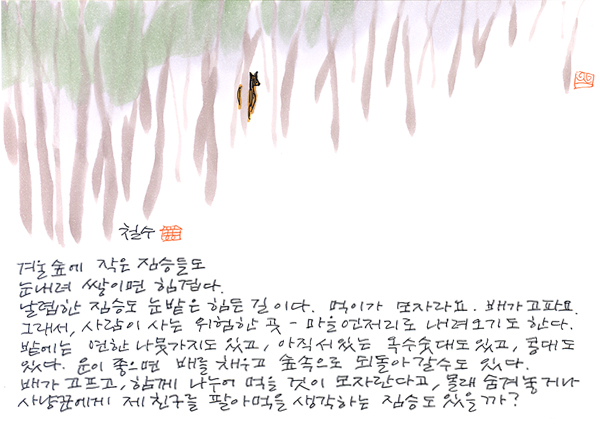 철수
겨울숲에 작은 짐승들도
눈내려 쌓이면 힘겹다.
날렵한 짐승도 눈밭은 힘든 길이다. 먹이가 모자라요. 배가고파요.
그래서, 사람이 사는 위험한 곳 - 마을언저리로 내려오기도 한다.
밭에는 연한 나뭇가지도 있고, 아직 서있는 옥수숫대도 있고, 콩대도
있다. 운이 좋으면 배를 채우고 숲속으로 되돌아 갈수도 있다.
배가 고프고, 함께 나누어 먹을 것이 모자란다고, 몰래 숨겨놓거나
사냥꾼에게 제 친구를 팔아먹을 생각하는 짐승도 있을까?